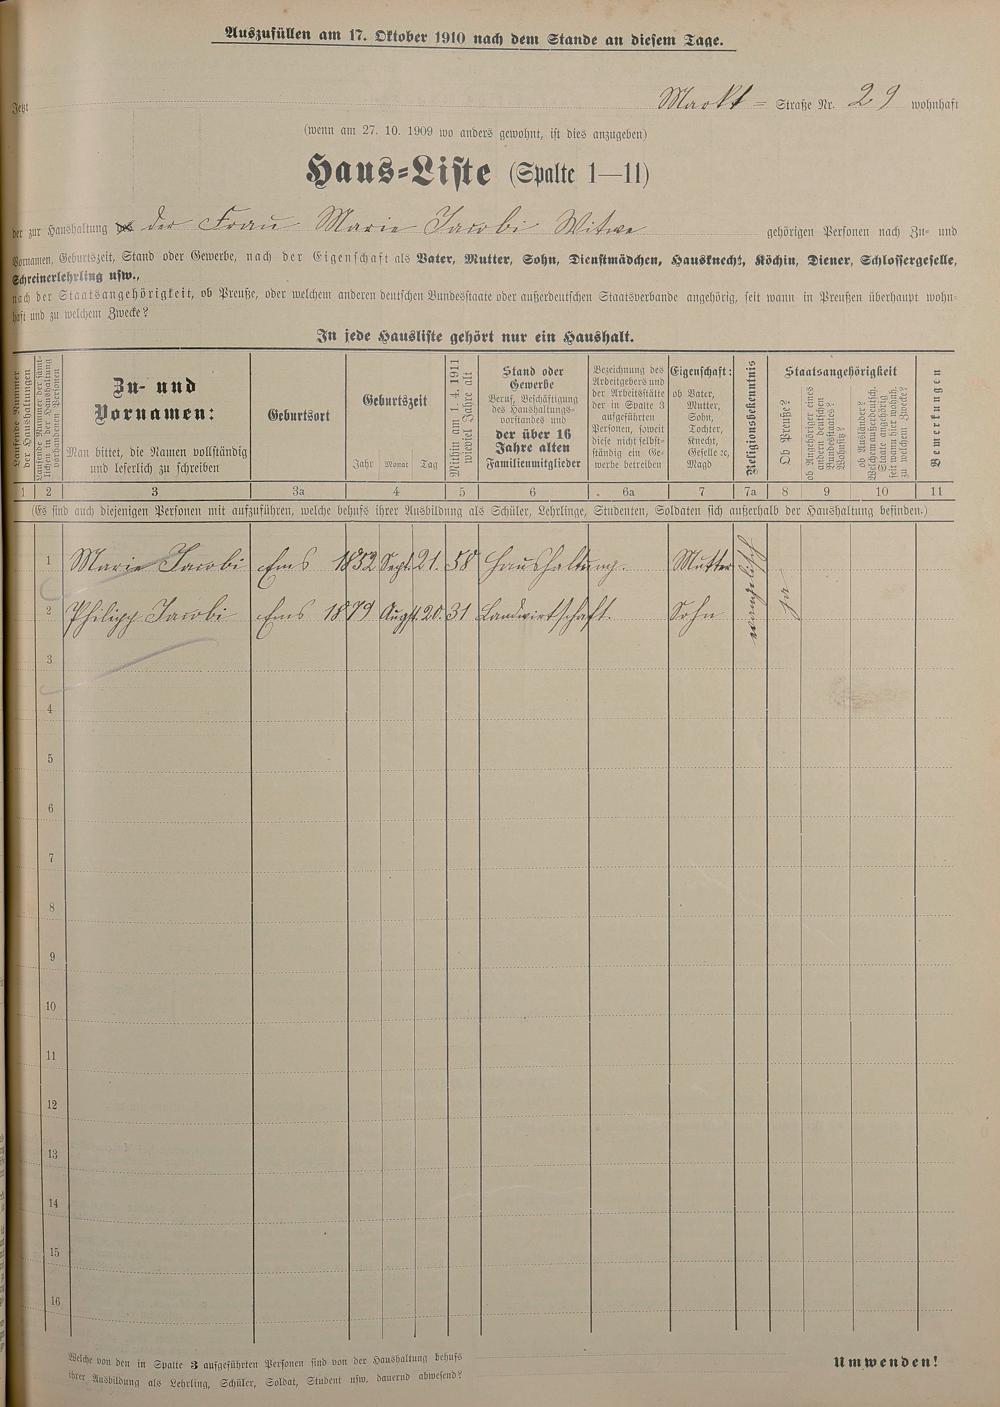 Auszufüllen am 17. Oktober 1910 nach dem Stande an diesem Tage.
Jetzt Markt = Straße Nr. 29 wohnhaft
(wenn am 27. 10. 1909 wo anders gewohnt, ist dies anzugeben)
Haus=Liste (Spalte 1—11)
der zur Haushaltung der Frau Marie Jacobi Witwe gehörigen Personen nach Zu= und
Vornamen, Geburtszeit, Stand oder Gewerbe, nach der Eigenschaft als Vater, Mutter, Sohn, Dienstmädchen, Hausknecht, Köchin, Diener, Schlossergeselle,
Schreinerlehrling usw.,
nach der Staatsangehörigkeit, ob Preuße, oder welchem anderen deutschen Bundesstaate oder außerdeutschen Staatsverbande angehörig, seit wann in Preußen überhaupt wohn=
haft und zu welchem Zwecke?
In jede Hausliste gehört nur ein Haushalt.
Laufende Nummer
der Haushaltungen
Laufende Nummer der sämt=
lichen in der Haushaltung
vorhandenen Personen
Zu= und
Vornamen:
Man bittet, die Namen vollständig
und leserlich zu schreiben
Geburtsort
Geburtszeit
Jahr Monat Tag
Mithin am 1. 4. 1911
wieviel Jahre alt
Stand oder
Gewerbe
Beruf, Beschäftigung
des Haushaltungs=
vorstandes und
der über 16
Jahre alten
Familienmitglieder
Bezeichnung des
Arbeitgebers und
der Arbeitsstätte
der in Spalte 3
aufgeführten
Personen, soweit
diese nicht selbst=
ständig ein Ge=
werbe betreiben
Eigenschaft:
ob Vater,
Mutter,
Sohn,
Tochter,
Knecht,
Geselle ꝛc,
Magd
Religionsbekenntnis
Staatsangehörigkeit
Ob Preuße?
ob Angehöriger eines
andern deutschen
Bundesstaates?
Wohnsitz?
ob Ausländer?
Welchem außerdeutsch.
Staate angehörig
seit wann hier wohnh.
zu welchem Zwecke?
Bemerkungen
1 2 3 3a 4 5 6 6a 7 7a 8 9 10 11
(Es sind auch diejenigen Personen mit aufzuführen, welche behufs ihrer Ausbildung als Schüler, Lehrlinge, Studenten, Soldaten sich außerhalb der Haushaltung befinden.)
1 Marie Jacobi Ems 1852 Sept. 21. 58 Haushaltung. Mutter evangelisch ja
2 Philipp Jacobi Ems 1879 Augst. 20. 31 Landwirtschaft. Sohn
3
4
5
6
7
8
9
10
11
12
13
14
15
16
Welche von den in Spalte 3 aufgeführten Personen sind von der Haushaltung behufs
ihrer Ausbildung als Lehrling, Schüler, Soldat, Student usw. dauernd abwesend?
Umwenden!